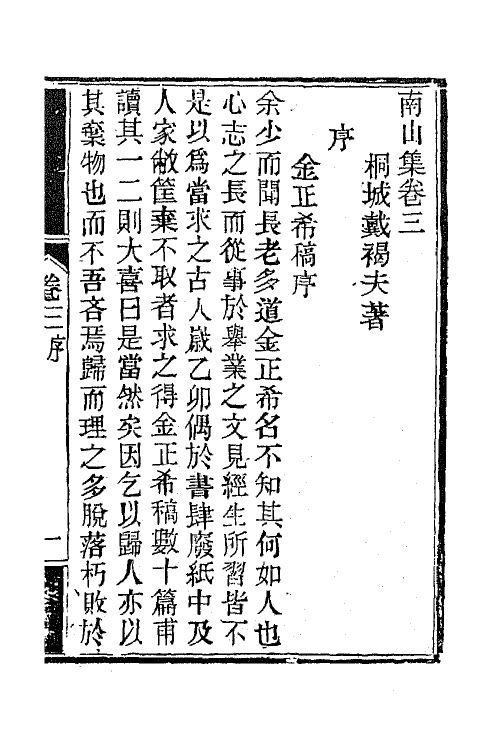 南山集卷三
桐城戴褐夫著
序
金正希稿序
余少而聞長老多道金正希名不知其何如人也
心志之長而從事於舉業之文見經生所習皆不
是以爲當求之古人歲乙卯偶於書肆廢紙中及
人家敝筐棄不取者求之得金正希稿數十篇甫
讀其一二則大喜曰是當然矣因乞以歸人亦以
其棄物也而不吾吝焉歸而理之多脫落朽敗於
卷三序
一